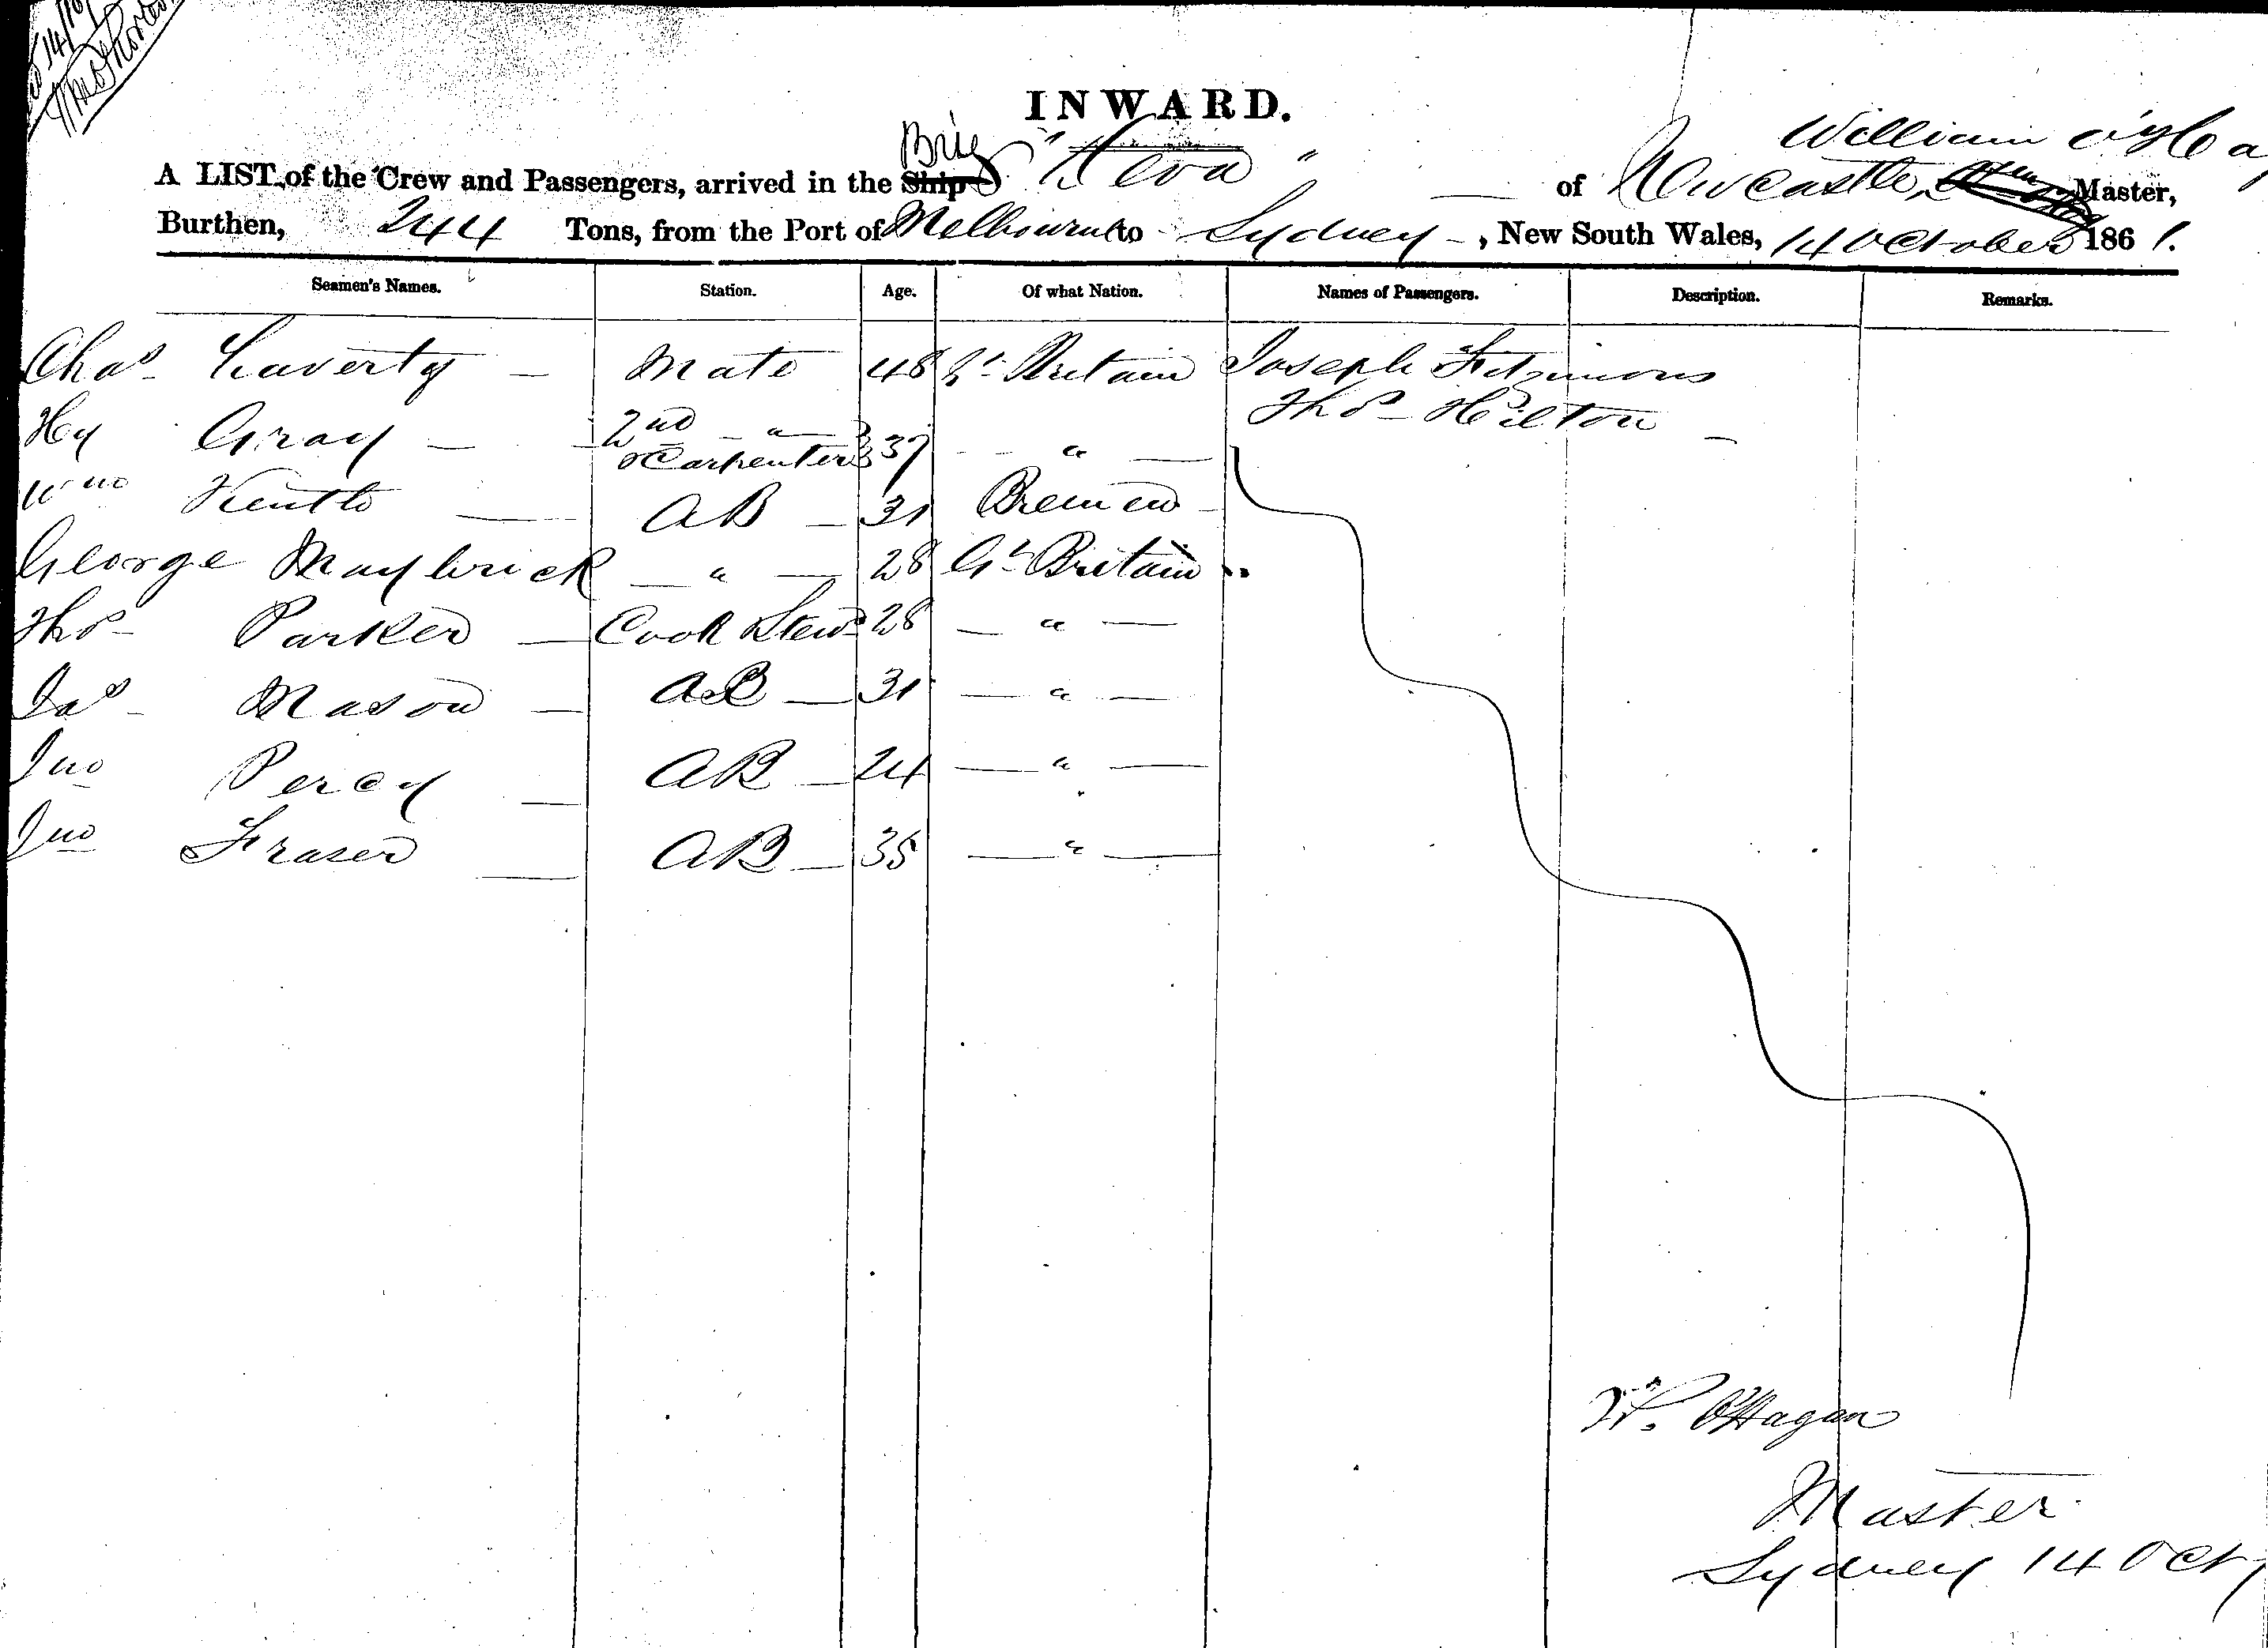 14/10/
INWARD.
William O'Ha
A LIST of the Crew and Passengers, arrived in the Ship Brig "Hera" of Newcastle, Master,
Burthen, 244 Tons, from the Port of Melbourne to Sydney, New South Wales, 14 October 1861.
Seamen's Names. Station. Age. Of what Nation. Names of Passengers. Description. Remarks.
Chas Laverty — Mate 48 Gt Britain Joseph Fitzimons
Thos Hilton —
Hy Gray — 2nd " & Carpenter 37 " —
Wm — AB — 31 Bremen
George Maybrick — " — 28 Gt Britain
Thos Parker — Cook Stewd 28 — " —
Jas Mason — AB — 31 — " —
Jno Percy — AB — 24 — " —
Jno Fraser — AB — 35 — " —
W. O'Hagan
Master
Sydney 14 Oct